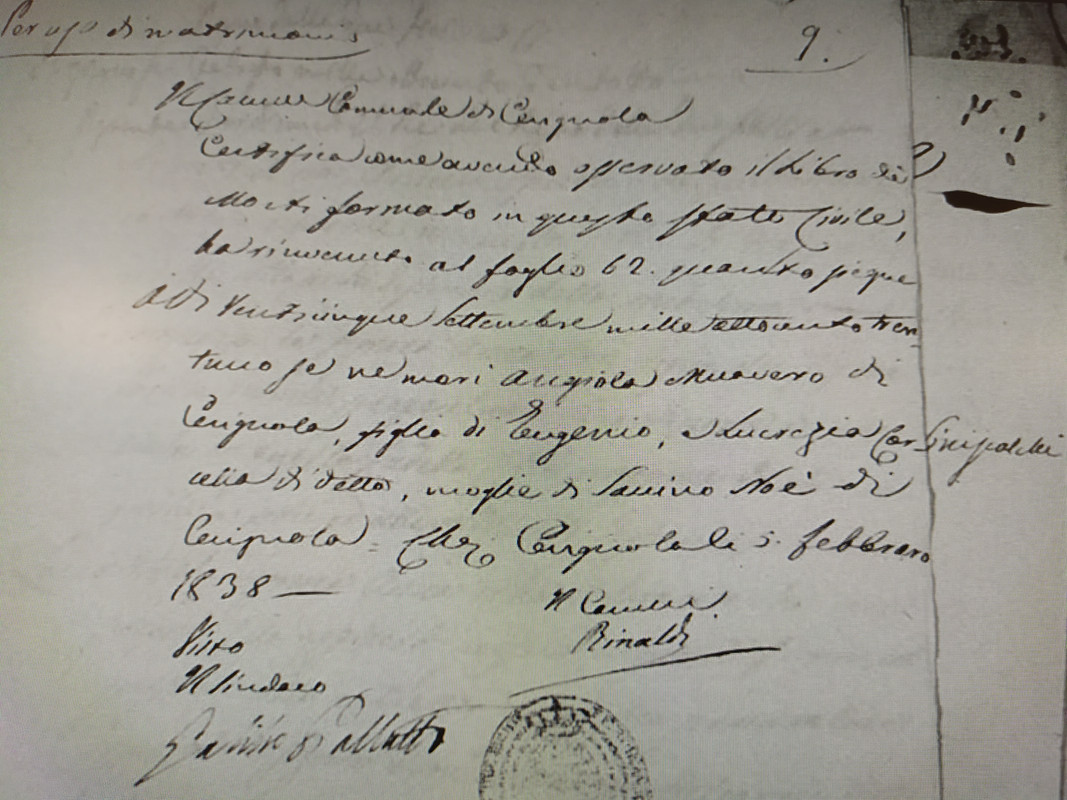 Per uso di matrimonio
9.
Il Cancelliere Comunale di Cerignola
Certifica come avendo osservato il Libro dei
Morti formato in questo Stato Civile,
ha rinvenuto al foglio 62. quanto segue
A dì Venticinque Settembre mille ottocento tren-
tuno se ne morì Angiola Muavero di
Cerignola, figlia di Eugenio, e Lucrezia Car-
di detto, moglie di Savino Noè di
Cerignola = Cerignola li 5. febbraro
1838 —
Il Cancelliere
Rinaldi
Visto
Il Sindaco